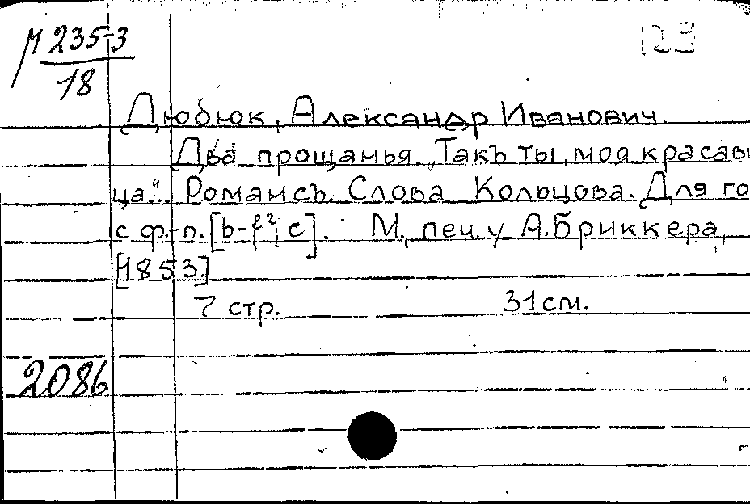 М 235-3
18
123
Дюбюк, Александр Иванович.
Два прощанья. „Такъ ты, моя красави
ца". Романсъ. Слова Кольцова. Для го
с ф.-п. [b-f², c]. М., печ. у А. Бриккера,
[1853]
7 стр. 31 см.
2086